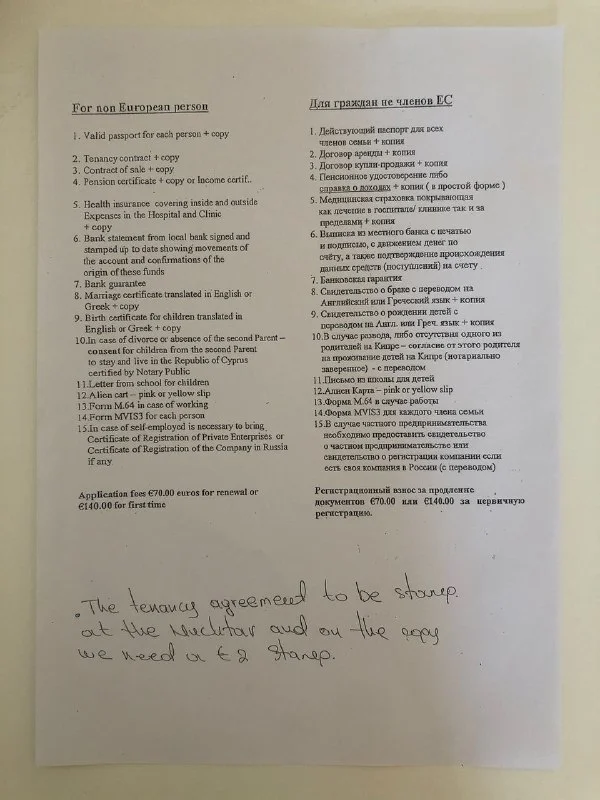 For non European person
1. Valid passport for each person + copy
2. Tenancy contract + copy
3. Contract of sale + copy
4. Pension certificate + copy or Income certif..
5. Health insurance covering inside and outside
Expenses in the Hospital and Clinic
+ copy
6. Bank statement from local bank signed and
stamped up to date showing movements of
the account and confirmations of the
origin of these funds
7. Bank guarantee
8. Marriage certificate translated in English or
Greek + copy
9. Birth certificate for children translated in
English or Greek + copy
10.In case of divorce or absence of the second Parent –
consent for children from the second Parent
to stay and live in the Republic of Cyprus
certified by Notary Public
11.Letter from school for children
12.Alien cart – pink or yellow slip
13.Form M.64 in case of working
14.Form MVIS3 for each person
15.In case of self-employed is necessary to bring
Certificate of Registration of Private Enterprises or
Certificate of Registration of the Company in Russia
if any
Application fees €70.00 euros for renewal or
€140.00 for first time
Для граждан не членов ЕС
1. Действующий паспорт для всех
членов семьи + копия
2. Договор аренды + копия
3. Договор купли-продажи + копия
4. Пенсионное удостоверение либо
справка о доходах + копия ( в простой форме )
5. Медицинская страховка покрывающая
как лечение в госпитале/ клинике так и за
пределами + копия
6. Выписка из местного банка с печатью
и подписью, с движением денег по
счёту, а также подтверждение происхождения
данных средств (поступлений) на счету .
7. Банковская гарантия
8. Свидетельство о браке с переводом на
Английский или Греческий язык + копия
9. Свидетельство о рождении детей с
переводом на Англ. или Греч. язык + копия
10.В случае развода, либо отсутствия одного из
родителей на Кипре – согласие от этого родителя
на проживание детей на Кипре (нотариально
заверенное) - с переводом
11.Письмо из школы для детей
12.Алиен Карта – pink or yellow slip
13.Форма М.64 в случае работы
14.Форма MVIS3 для каждого члена семьи
15.В случае частного предпринимательства
необходимо предоставить свидетельство
о частном предпринимательстве или
свидетельство о регистрации компании если
есть своя компания в России (с переводом)
Регистрационный взнос за продление
документов €70.00 или €140.00 за первичную
регистрацию.
The tenancy agreement to be stamp.
at the Muchtar and on the copy
we need a €2 Stamp.